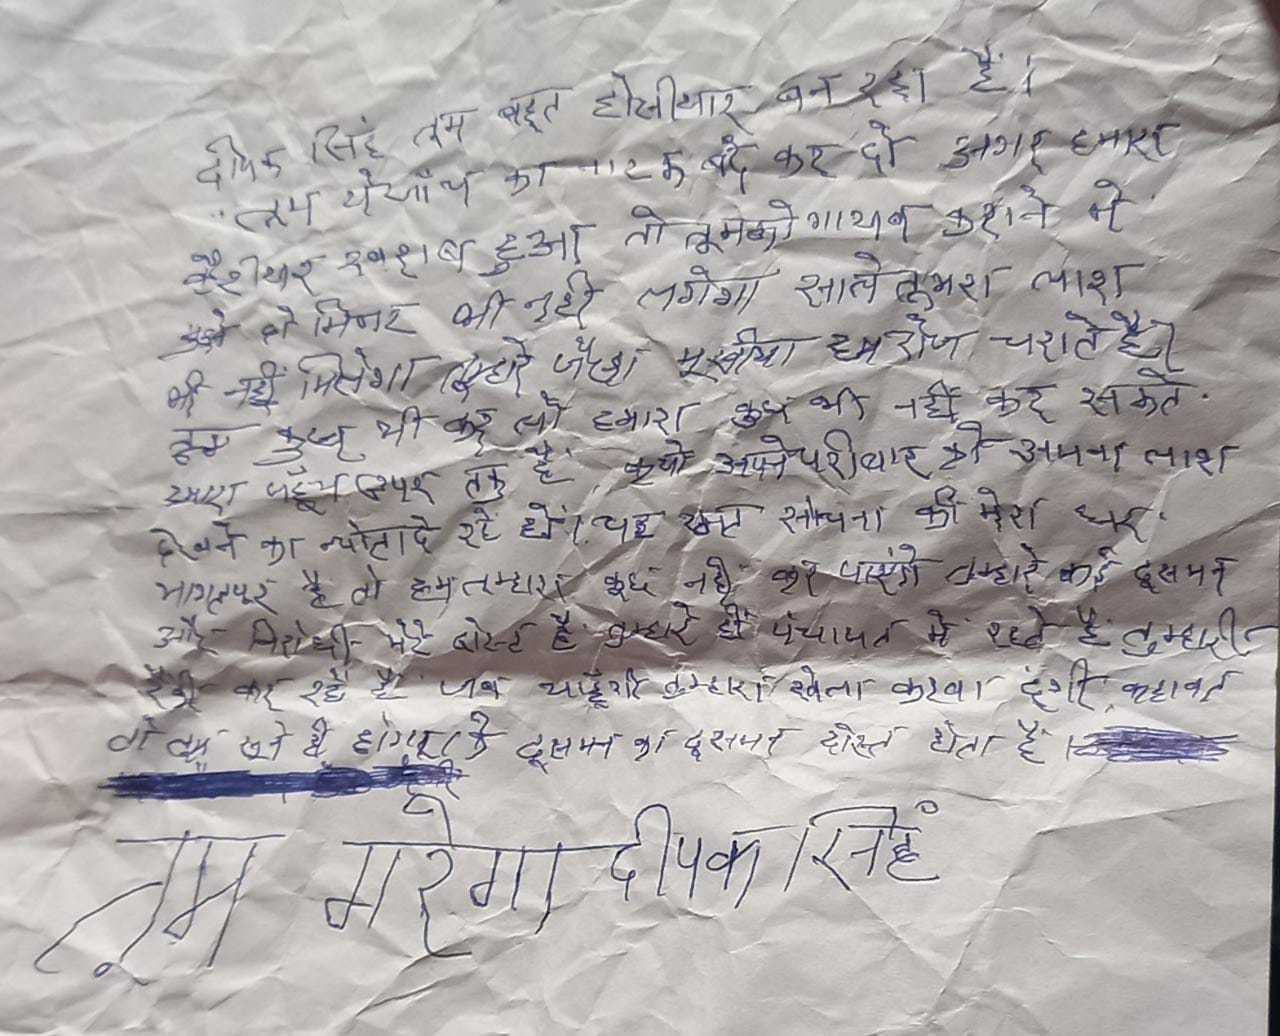 दीपक सिंह तुम बहूत होसीयार बन रहा है।
तुम ये जाँच का नाटक बंद कर दो अगर हमारा
कैरीयर खराब हुआ तो तूमको गायब कराने में
हमे दो मिनट भी नही लगेगा साले तूमरा लाश
भी नहीं मिलेगा तुम्हारे जैसा मूखीया हम रोज चराते है।
तुम कुछ भी कर लो हमारा कुछ भी नहीं कर सकते
हमारा पहूँच उपर तक है। क्यों अपने परीवार को अपना लाश
देखने का न्योता दे रहे हो। यह मत सोचना की मेरा घर
भागलपूर है तो हम तुम्हारा कूछ नही कर पाएंगे तुम्हारे कई दूसमन
और विरोधी मेरे दोस्त है तुम्हारे ही पंचायत में रहते है तुम्हारी
रैकी कर रहे है जब चाहूँगी तुम्हारा खेला करवा दूंगी कहावत
तो तुम सुने ही होंगे की दूसमन का दूसमन दोस्त होता है।
तूम मरेगा दीपक सिंह